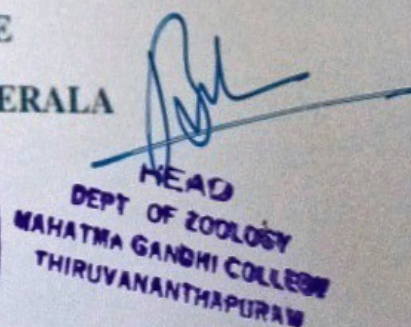 E
ERALA
HEAD
DEPT OF ZOOLOGY
MAHATMA GANDHI COLLEGE
THIRUVANANTHAPURAM